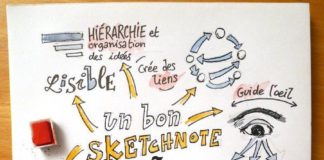 HiÉRARCHiE et
organisation
des idées
Crée des
liens
Lisible
Guide l'oeil
un bon
SKETCHNOTE